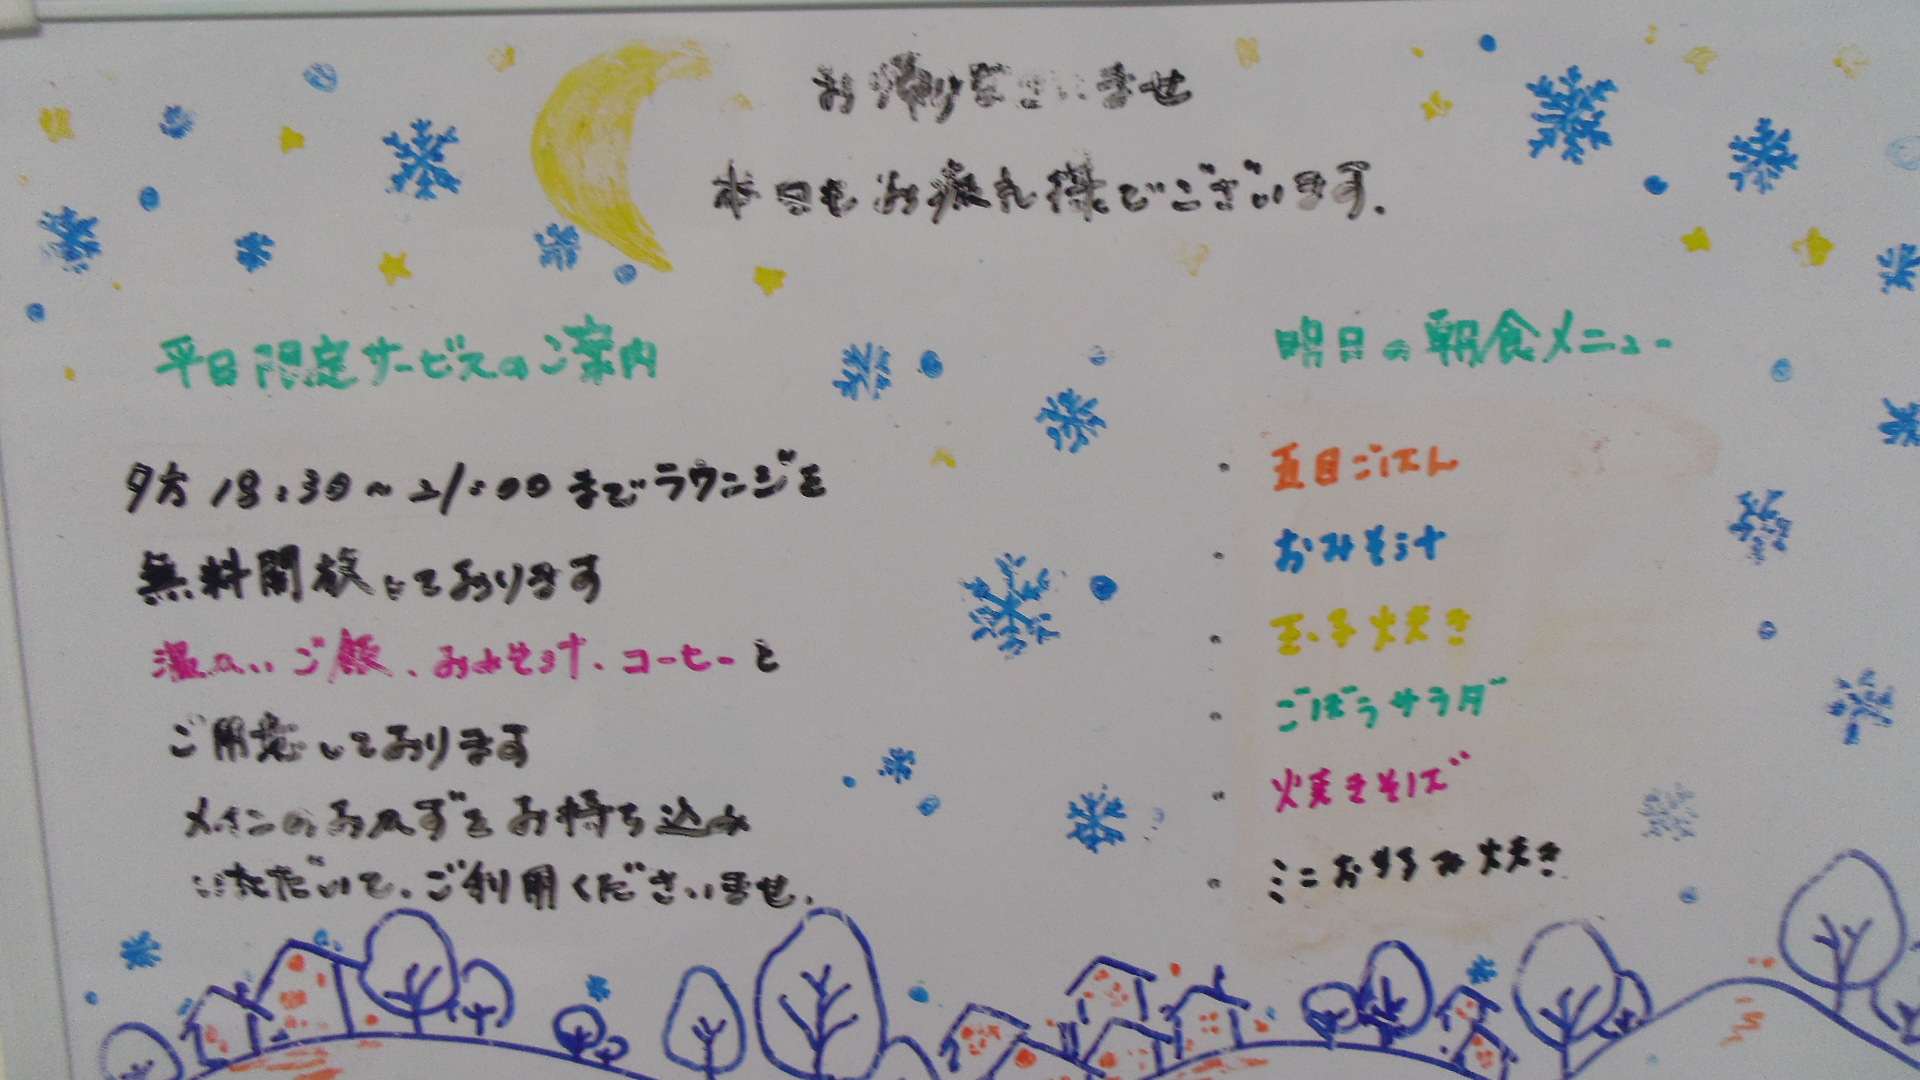 お帰りなさいませ
本日もお疲れ様でございます.
平日限定サービスのご案内
夕方 18:30～21:00 までラウンジを
無料開放しております
温かいご飯、おみそ汁、コーヒーと
ご用意しております
メインのおかずをお持ち込み
いただいて、ご利用くださいませ.
明日の朝食メニュー
・五目ごはん
・おみそ汁
・玉子焼き
・ごぼうサラダ
・焼きそば
・ミニお好み焼き